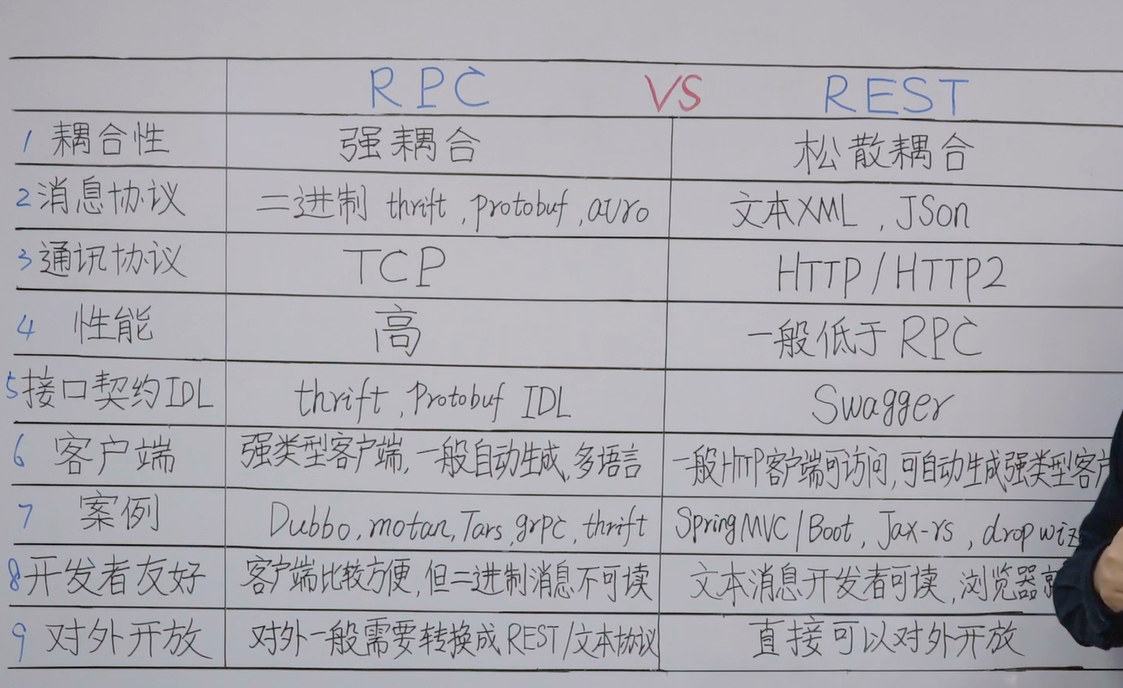 RPC VS REST
1 耦合性 强耦合 松散耦合
2 消息协议 二进制 thrift, protobuf, avro 文本XML, JSon
3 通讯协议 TCP HTTP/HTTP2
4 性能 高 一般低于RPC
5 接口契约IDL thrift, Protobuf IDL Swagger
6 客户端 强类型客户端, 一般自动生成, 多语言 一般HTTP客户端可访问, 可自动生成强类型客
7 案例 Dubbo, motan, Tars, grpc, thrift SpringMVC/Boot, Jax-rs, dropwiz
8 开发者友好 客户端比较方便, 但二进制消息不可读 文本消息开发者可读, 浏览器
9 对外开放 对外一般需要转换成REST/文本协议 直接可以对外开放